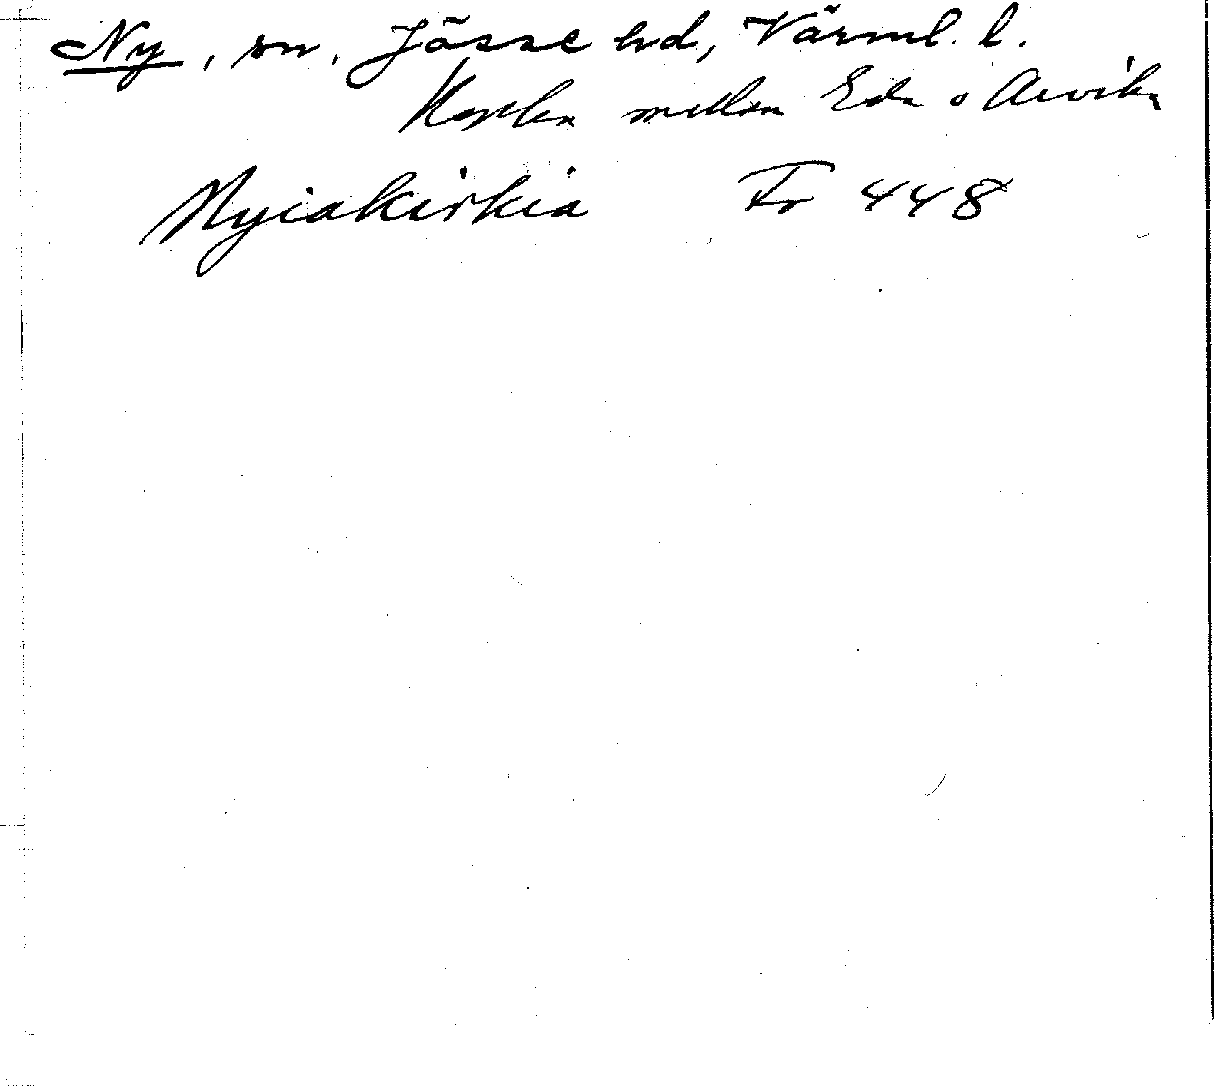 Ny, sn, Jösse hd, Värml. l.
mellan Eda o Arvika
Nyiakirkia Fr 448